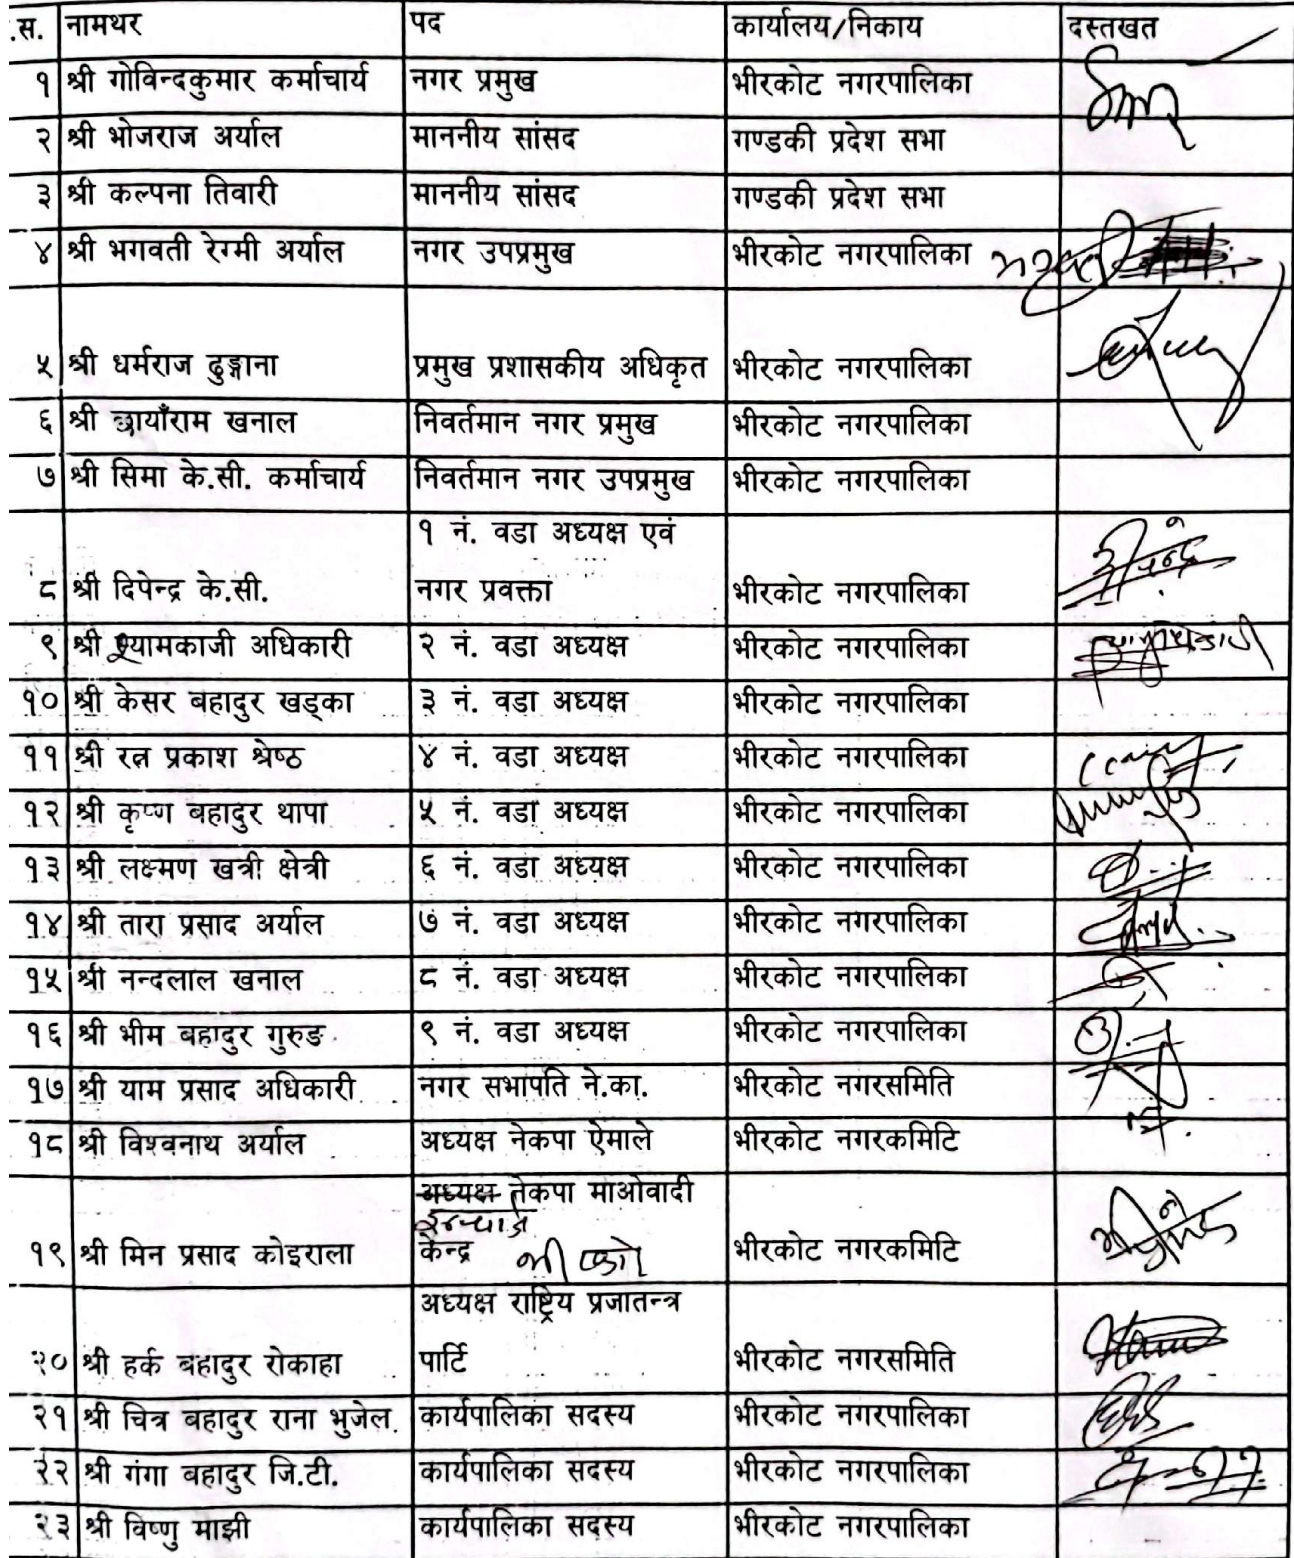 .स. नामथर पद कार्यालय/निकाय दस्तखत
१ श्री गोविन्दकुमार कर्माचार्य नगर प्रमुख भीरकोट नगरपालिका
२ श्री भोजराज अर्याल माननीय सांसद गण्डकी प्रदेश सभा
३ श्री कल्पना तिवारी माननीय सांसद गण्डकी प्रदेश सभा
४ श्री भगवती रेग्मी अर्याल नगर उपप्रमुख भीरकोट नगरपालिका
५ श्री धर्मराज ढुङ्गाना प्रमुख प्रशासकीय अधिकृत भीरकोट नगरपालिका
६ श्री छायाँराम खनाल निवर्तमान नगर प्रमुख भीरकोट नगरपालिका
७ श्री सिमा के.सी. कर्माचार्य निवर्तमान नगर उपप्रमुख भीरकोट नगरपालिका
१ नं. वडा अध्यक्ष एवं
८ श्री दिपेन्द्र के.सी. नगर प्रवक्ता भीरकोट नगरपालिका
९ श्री श्यामकाजी अधिकारी २ नं. वडा अध्यक्ष भीरकोट नगरपालिका
१० श्री केसर बहादुर खड्का ३ नं. वडा अध्यक्ष भीरकोट नगरपालिका
११ श्री रत्न प्रकाश श्रेष्ठ ४ नं. वडा अध्यक्ष भीरकोट नगरपालिका
१२ श्री कृष्ण बहादुर थापा ५ नं. वडा अध्यक्ष भीरकोट नगरपालिका
१३ श्री लक्ष्मण खत्री क्षेत्री ६ नं. वडा अध्यक्ष भीरकोट नगरपालिका
१४ श्री तारा प्रसाद अर्याल ७ नं. वडा अध्यक्ष भीरकोट नगरपालिका
१५ श्री नन्दलाल खनाल ८ नं. वडा अध्यक्ष भीरकोट नगरपालिका
१६ श्री भीम बहादुर गुरुङ ९ नं. वडा अध्यक्ष भीरकोट नगरपालिका
१७ श्री याम प्रसाद अधिकारी नगर सभापति ने.का. भीरकोट नगरसमिति
१८ श्री विश्वनाथ अर्याल अध्यक्ष नेकपा ऐमाले भीरकोट नगरकमिटि
अध्यक्ष नेकपा माओवादी
इन्चार्ज
१९ श्री मिन प्रसाद कोइराला केन्द्र भीरकोट नगरकमिटि
अध्यक्ष राष्ट्रिय प्रजातन्त्र
२० श्री हर्क बहादुर रोकाहा पार्टि भीरकोट नगरसमिति
२१ श्री चित्र बहादुर राना भुजेल कार्यपालिका सदस्य भीरकोट नगरपालिका
२२ श्री गंगा बहादुर जि.टी. कार्यपालिका सदस्य भीरकोट नगरपालिका
२३ श्री विष्णु माझी कार्यपालिका सदस्य भीरकोट नगरपालिका